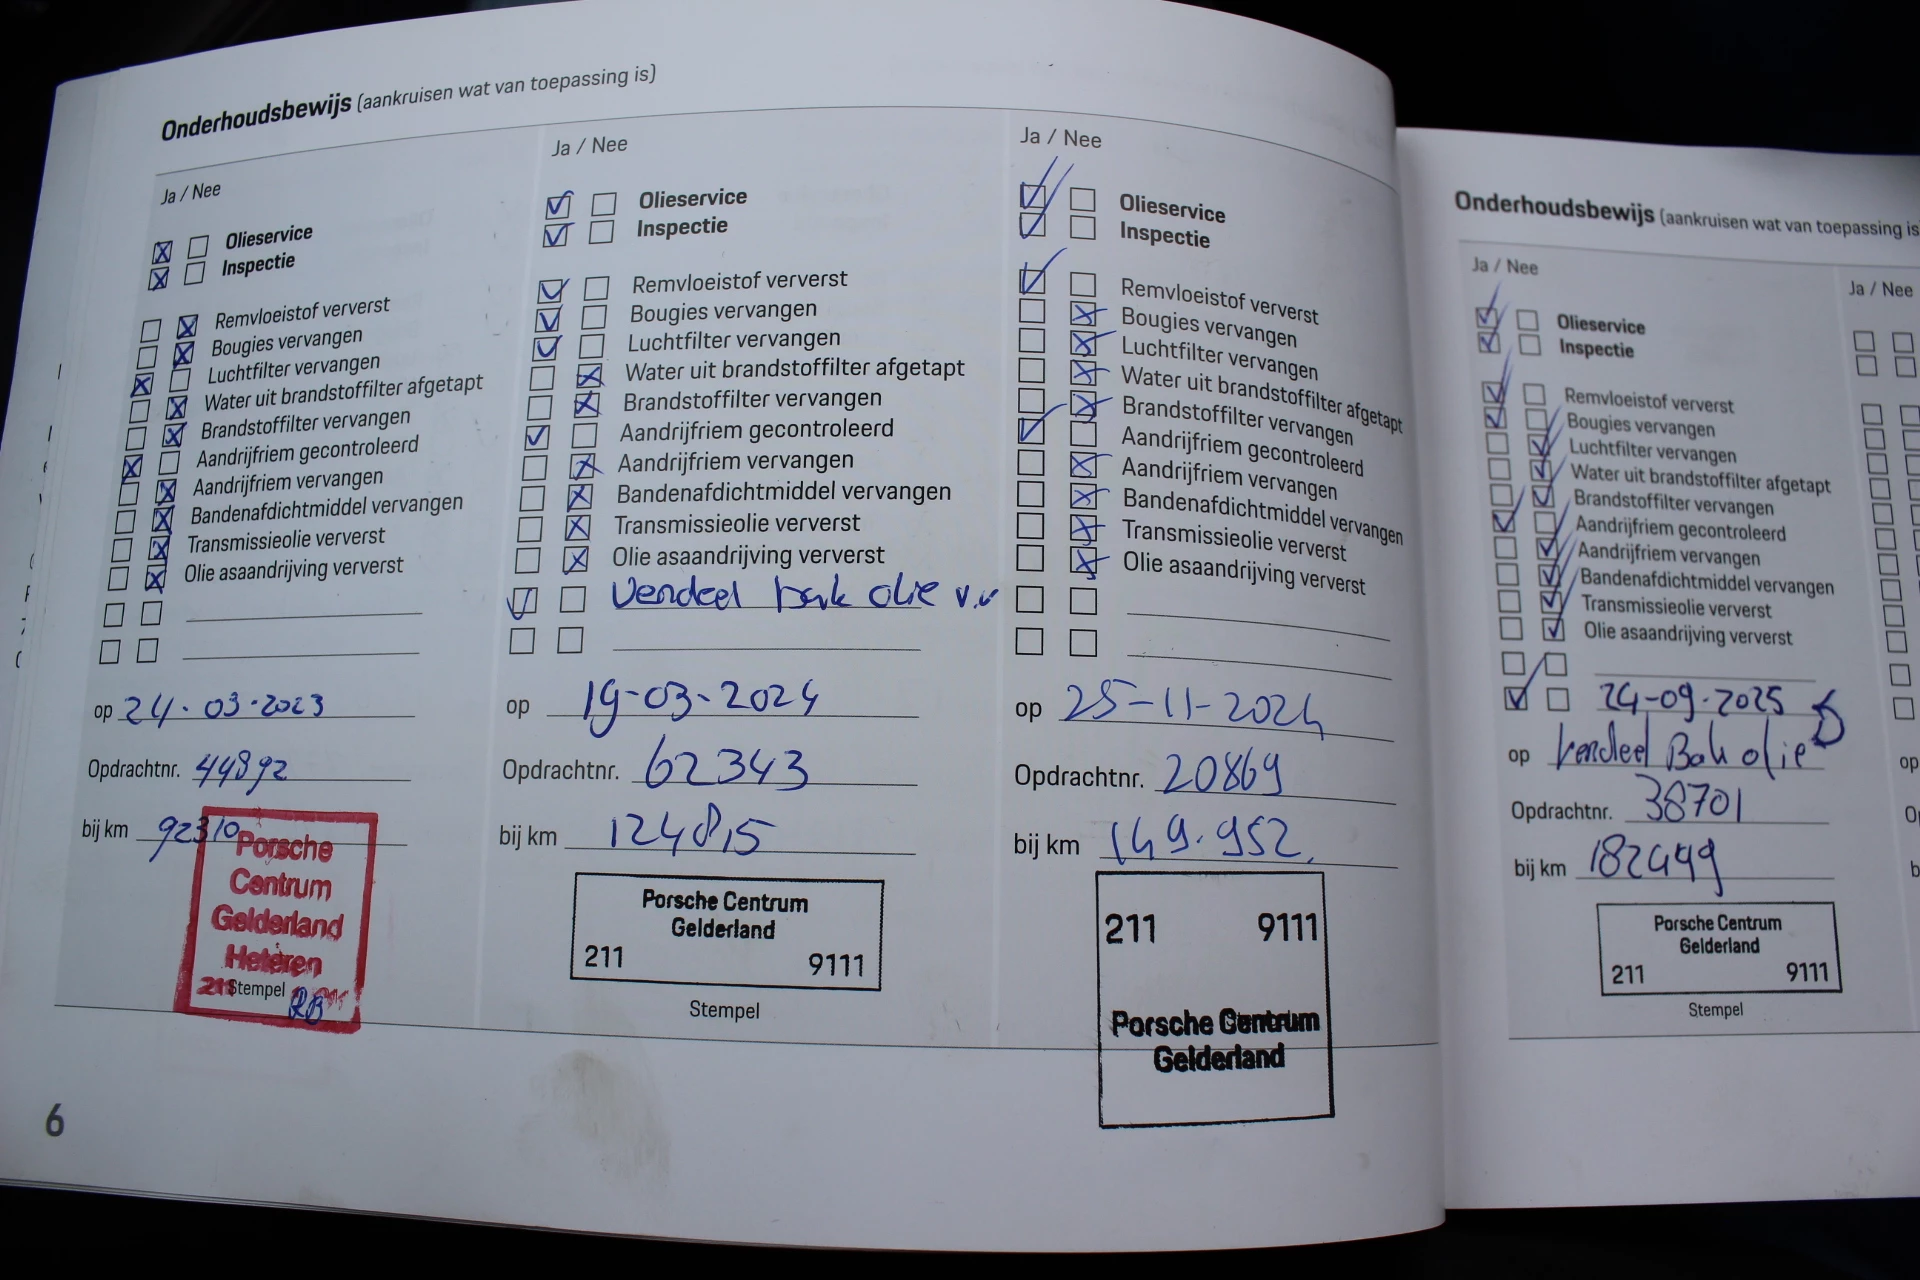 Onderhoudsbewijs (aankruisen wat van toepassing is)
Ja / Nee
Olieservice
Inspectie
Remvloeistof ververst
Bougies vervangen
Luchtfilter vervangen
Water uit brandstoffilter afgetapt
Brandstoffilter vervangen
Aandrijfriem gecontroleerd
Aandrijfriem vervangen
Bandenafdichtmiddel vervangen
Transmissieolie ververst
Olie asaandrijving ververst
op 24-03-2023
Opdrachtnr. 44892
bij km 92310
Porsche
Centrum
Gelderland
Heteren
211
Stempel
Ja / Nee
Olieservice
Inspectie
Remvloeistof ververst
Bougies vervangen
Luchtfilter vervangen
Water uit brandstoffilter afgetapt
Brandstoffilter vervangen
Aandrijfriem gecontroleerd
Aandrijfriem vervangen
Bandenafdichtmiddel vervangen
Transmissieolie ververst
Olie asaandrijving ververst
Verdeel bak olie v.v
op 19-03-2024
Opdrachtnr. 62343
bij km 124815
Porsche Centrum
Gelderland
211 9111
Stempel
Ja / Nee
Olieservice
Inspectie
Remvloeistof ververst
Bougies vervangen
Luchtfilter vervangen
Water uit brandstoffilter afgetapt
Brandstoffilter vervangen
Aandrijfriem gecontroleerd
Aandrijfriem vervangen
Bandenafdichtmiddel vervangen
Transmissieolie ververst
Olie asaandrijving ververst
op 25-11-2024
Opdrachtnr. 20869
bij km 149.952
211 9111
Porsche Centrum
Gelderland
6
Onderhoudsbewijs (aankruisen wat van toepassing is
Ja / Nee
Olieservice
Inspectie
Remvloeistof ververst
Bougies vervangen
Luchtfilter vervangen
Water uit brandstoffilter afgetapt
Brandstoffilter vervangen
Aandrijfriem gecontroleerd
Aandrijfriem vervangen
Bandenafdichtmiddel vervangen
Transmissieolie ververst
Olie asaandrijving ververst
24-09-2025
op Verdeel Bak olie
Opdrachtnr. 38701
bij km 182499
Porsche Centrum
Gelderland
211 9111
Stempel
Ja / Nee
op